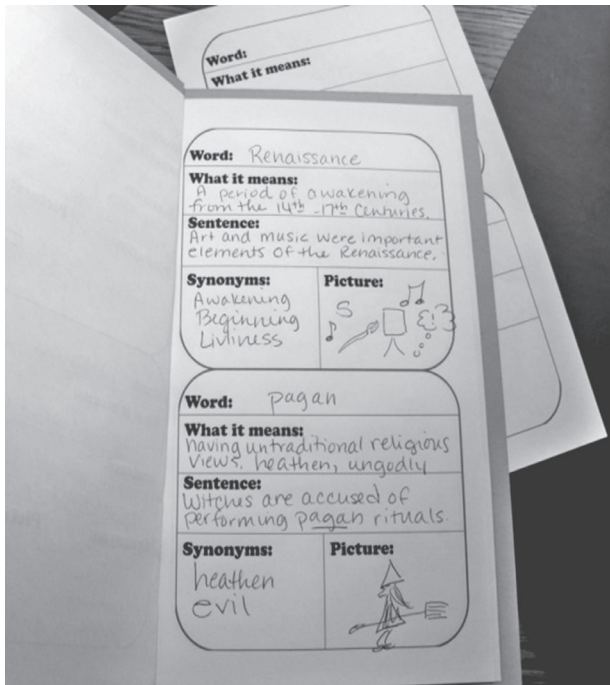 Word:
What it means:
Word: Renaissance
What it means:
A period of awakening
from the 14th - 17th Centuries.
Sentence:
Art and music were important
elements of the Renaissance.
Synonyms:
Awakening
Beginning
Livliness
Picture:
S
Word: pagan
What it means:
having untraditional religious
views. heathen, ungodly
Sentence:
Witches are accused of
performing pagan rituals.
Synonyms:
heathen
evil
Picture: